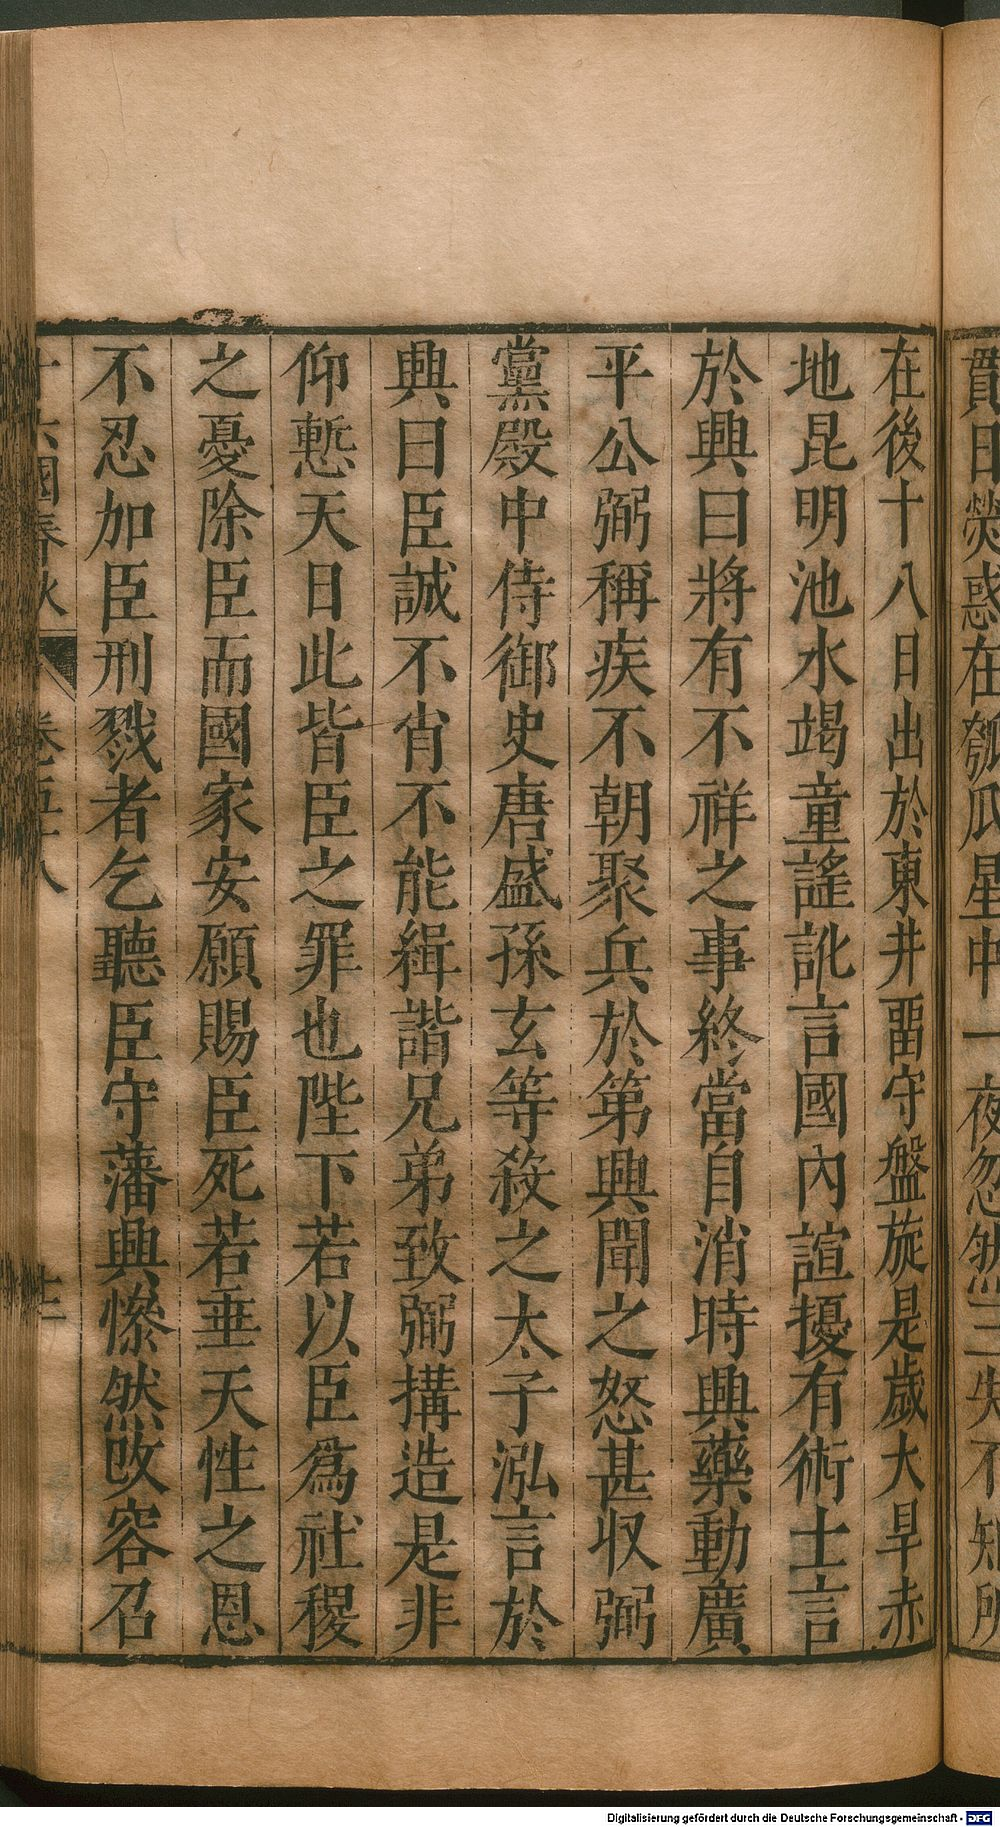 賈日熒惑在瓠瓜星中一夜忽然亡失不知所
在後十八日出於東井畱守盤旋是歲大旱赤
地昆明池水竭童謠訛言國內諠擾有術士言
於興曰將有不祥之事終當自消時興藥動廣
平公弼稱疾不朝聚兵於第興聞之怒甚収弼
黨殿中侍御史唐盛孫玄等殺之太子泓言於
興曰臣誠不肖不能緝諧兄弟致弼搆造是非
仰慙天日此皆臣之罪也陛下若以臣爲社稷
之憂除臣而國家安願賜臣死若垂天性之恩
不忍加臣刑戮者乞聽臣守藩興慘然改容召
十六國春秋 卷五十八
Digitalisierung gefördert durch die Deutsche Forschungsgemeinschaft - DFG